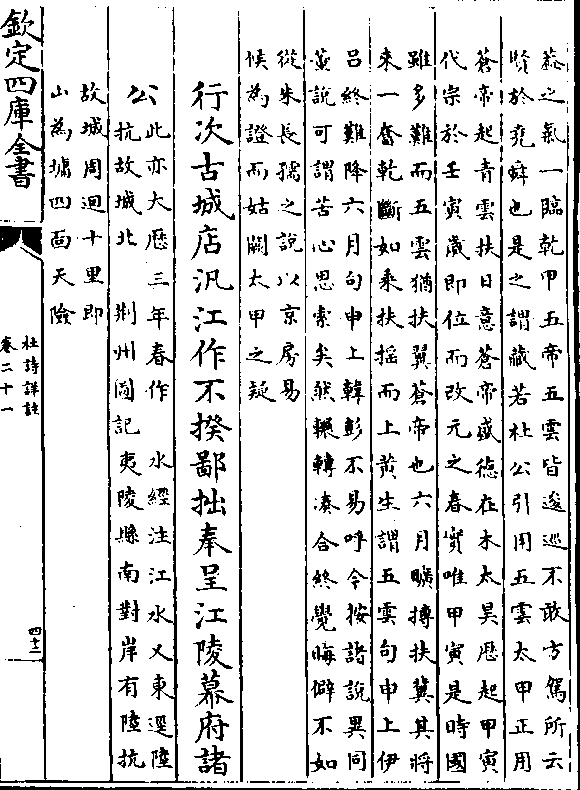 蕤之氣一臨乾甲五帝五雲皆逡巡不敢方駕所云
賢於堯舜也是之謂藏若杜公引用五雲太甲正用
蒼帝起青雲扶日意蒼帝盛德在木太昊厯起甲寅
代宗於壬寅歲即位而改元之春實唯甲寅是時國
雖多難而五雲猶扶翼蒼帝也六月曠摶扶冀其將
來一奮乾斷如乘扶搖而上黄生謂五雲句申上伊
吕終難降六月句申上韓彭不易呼今按諸說異同
黄說可謂苦心思索矣然輾轉凑合終覺晦僻不如
從朱長孺之說以京房易
候為證而姑闕太甲之疑
行次古城店汎江作不揆鄙拙奉呈江陵幕府諸
公
此亦大厯三年春作 水經注江水又東逕陸
抗故城北 荆州圖記夷陵縣南對岸有陸抗
故城周迴十里即
山為墉四面天險
欽定四庫全書
杜詩詳註
卷二十一
四十二